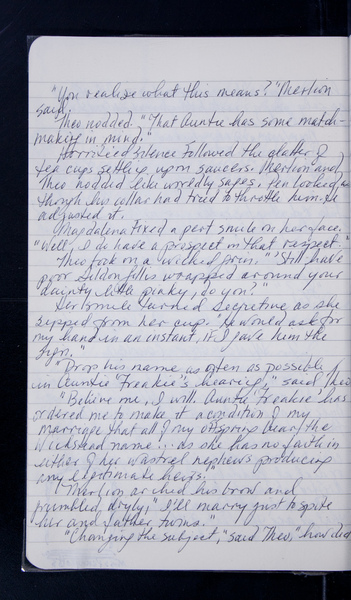 "You realize what this means?" Merlion
said.
Theo nodded. "That Auntie has some match-
making in mind."
Horrified silence followed the clatter of
tea cups settling upon saucers. Merlion and
Theo nodded like worldly sages. Ten looked as
though his collar had tried to throttle him. He
adjusted it.
Magdalena fixed a pert smile on her face.
"Well, I do have a prospect in that respect."
Theo took on a wicked grin. "Still have
poor Seldon Ellis wrapped around your
dainty little pinky, do you?"
Her smile turned secretive as she
sipped from her cup. "He would ask for
my hand in an instant, if I gave him the
sign."
"Drop his name as often as possible
in Auntie Freakie's hearing," said Theo.
"Believe me, I will. Auntie Freakie has
ordered me to make it a condition of my
marriage that all of my offspring bear the
name... as she has no faith in
either of her wastrel nephews producing
any legitimate heirs."
Merlion arched his brow and
grumbled, dryly, "I'll marry just to spite
her and father twins."
"Changing the subject," said Theo, "how did